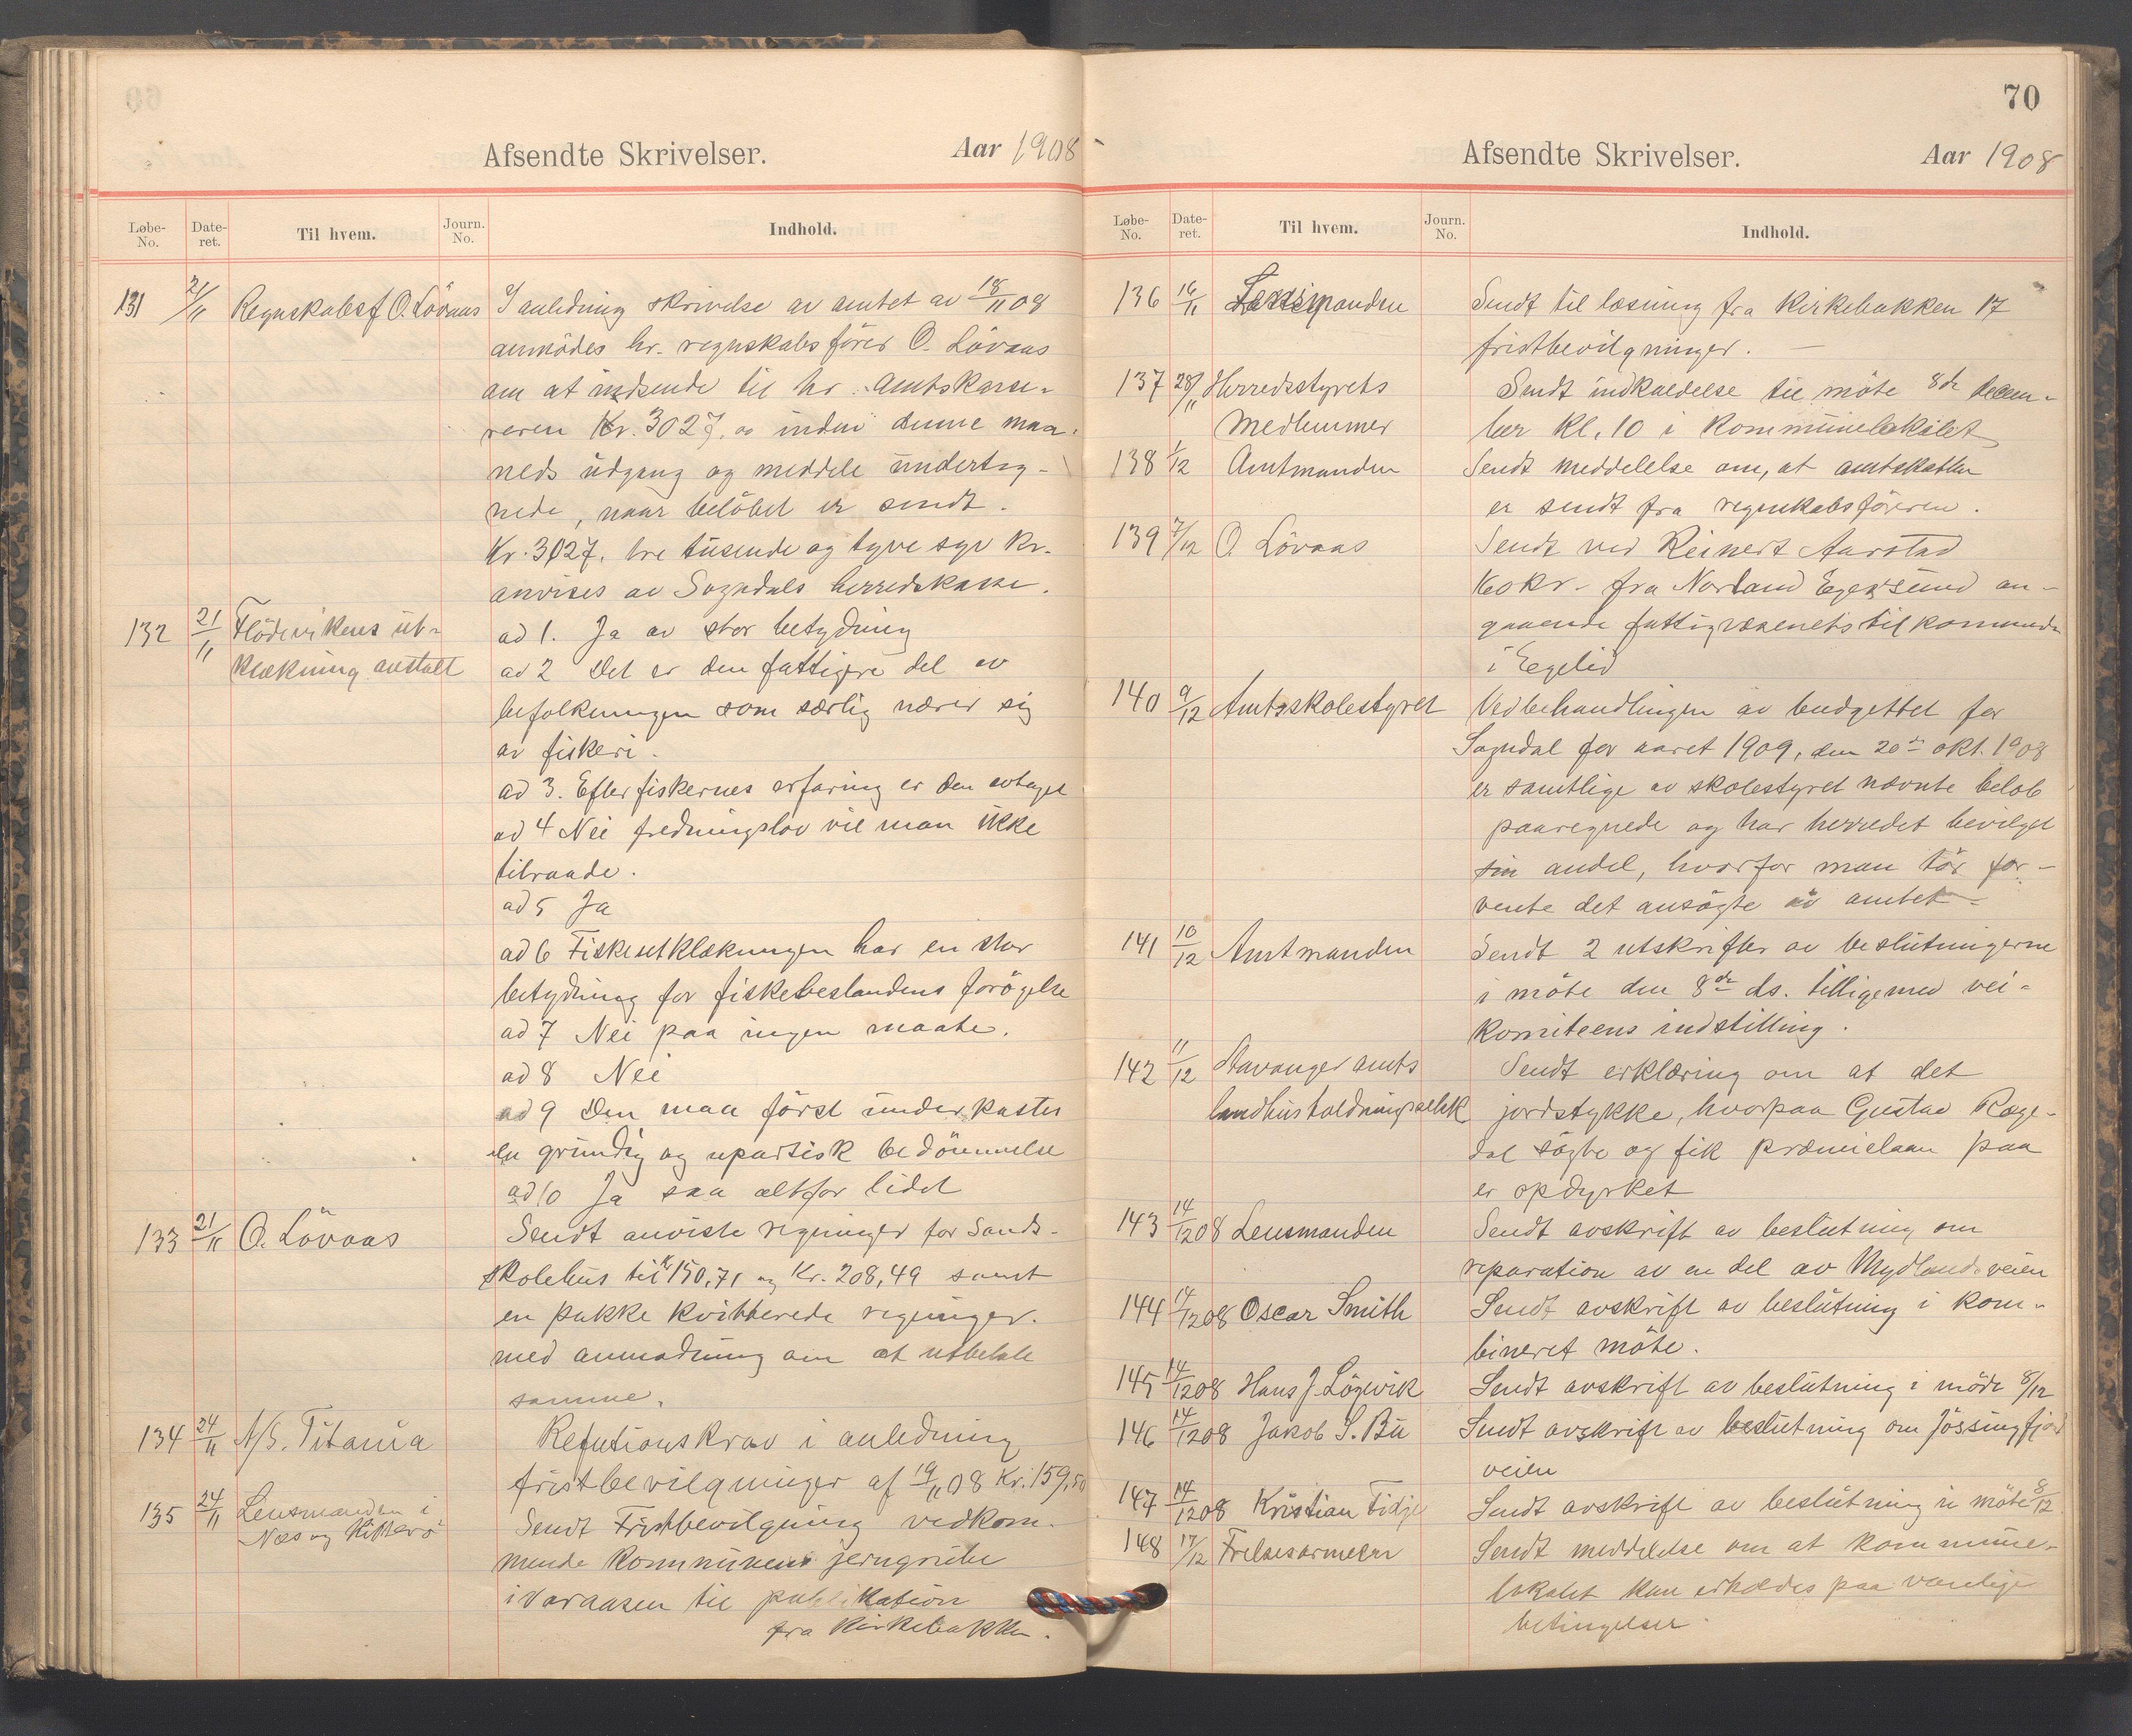 Afsendte Skrivelser. Aar 1908
Løbe-No. Date-ret. Til hvem. Journ. No. Indhold.
131 21/11 Regnskabsf O. Lövaas I anledning skrivelse av amtet av 18/11 08
anmödes hr. regnskabsförer O. Lövaas
om at indsende til hr. Amtskasse-
reren Kr. 3027,00 inden denne maa-
neds udgang og meddele underteg-
nede, naar belöbet er sendt.
Kr. 3027, tre tusende og tyve syv kr.
anvises av Sogndals herredskasse.
132 21/11 Flödevikens ut- ad 1. Ja av stor betydning
klækning anstalt ad 2 Det er den fattigere del av
befolkningen som særlig nærer sig
av fiskeri.
ad 3. Efter fiskernes erfaring er den avtaget
ad 4 Nei fredningslov vil man ikke
tilraade.
ad 5 Ja
ad 6 Fiskeutklækningen har en stor
betydning for fiskebestandens forögelse
ad 7 Nei paa ingen maate.
ad 8 Nei
ad 9 Den maa först underkastes
en grundig og upartisk bedömmelse
ad 10 Ja saa altfor lidet
133 21/11 O. Lövaas Sendt anviste regninger for Sands-
skolehus til kr 150,71 og Kr. 208,49 samt
en pakke kvitterede regninger.
med anmodning om at utbetale
samme.
134 24/11 A/S. Titania Refutionskrav i anledning
fristbevilgninger af 19/11 08 Kr. 159,50
135 24/11 Lensmanden i Sendt Fristbevilgning vedkom-
Næs og Hitterö mende kommunens jerngrube
i Varaasen til publikation
fra Kirkebakken.
70
Afsendte Skrivelser. Aar 1908
Løbe-No. Date-ret. Til hvem. Journ. No. Indhold.
136 16/11 Lensmanden Sendt til læsning fra Kirkebakken 17
fristbevilgninger.
137 28/11 Herredsstyrets Sendt indkaldelse til möte 8de decem-
Medlemmer ber Kl. 10 i Kommunelokalet
138 1/12 Amtmanden Sendt meddelelse om, at amtskatten
er sendt fra regnskabsföreren.
139 7/12 O. Lövaas Sendt ved Reinert Aarstad
160 kr. fra Norland Egersund an-
gaaende fattigvæsenets til kommunen
i Egelid
140 9/12 Amtsskolestyret Ved behandlingen av budgettet for
Sogndal for aaret 1909, den 20de okt. 1908
er samtlige av skolestyret nævnte beløb
paaregnede og har herredet bevilget
sin andel, hvorfor man tör for-
vente det ansögte av amtet.
141 10/12 Amtmanden Sendt 2 utskrifter av beslutningerne
i möte den 8de ds. tilligemed vei-
komiteens indstilling.
142 11/12 Stavanger amts Sendt erklæring om at det
landhusholdningsselsk jordstykke, hvorpaa Gustav Ræge-
dal sögte og fik præmielaan paa
er opdyrket
143 14/12 08 Lensmanden Sendt avskrift av beslutning om
reparation av en del av Mydlandsveien
144 14/12 08 Oscar Smith Sendt avskrift av beslutning i kom-
bineret möte.
145 14/12 08 Hans J. Lögevik Sendt avskrift av beslutning i möde 8/12
146 14/12 08 Jakob S. Bu Sendt avskrift av beslutning om Jössingfjord
veien
147 14/12 08 Kristian Fidje Sendt avskrift av beslutning i möte 8/12
148 17/12 Frelsesarmeen Sendt meddelelse om at kommune-
lokalet kan erholdes paa vanlige
betingelser.